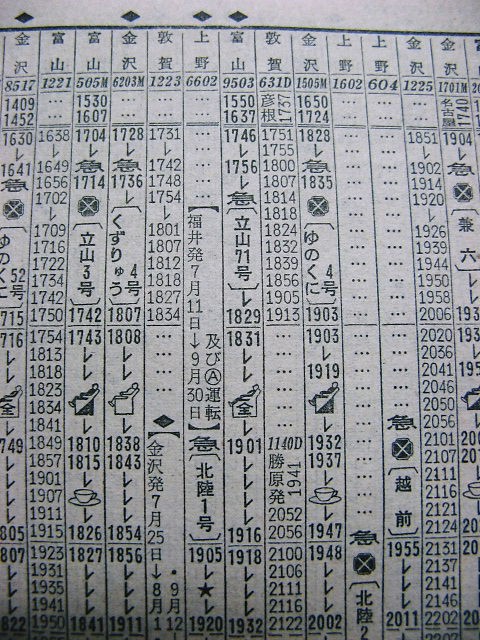 金沢 富山 富山 金沢 敦賀 上野 富山 敦賀 金沢 上野 上野 金沢 金沢
8517 1221 505M 6203M 1223 6602 9503 631D 1505M 1602 604 1225 1701M
1409 … 1530 … … … 1550 彦根 1737 1650 … … … 名古屋 1740
1452 … 1607 … … … 1637 1724 … … …
1630 1638 1704 1728 1731 … 1746 1751 1828 … … 1851 1904
レ レ レ レ レ 1755 レ レ レ
1641 1649 急 急 1742 1756 1800 急 1902 急
急 1656 1714 1736 1748 レ 1807 1835 1914
1702 1754 急 1814 1920
レ レ 1818 レ
1709 1801 1824 1926
1716 1807 1832 1939
1722 1812 1839 1944
1734 1818 1856 1950
1742 1827 1905 1958
ゆのくに52号
立山3号
くずりゅう4号
福井発7月11日→9月30日
及びⒶ運転
立山71号
ゆのくに4号
兼六
715 1750 1742 1807 1834 1829 1913 1903 2006
716 1754 1743 1808 … 1831 … 1903 2020
1813 2035
1818 1919 2041
1823 2046
1834 2050
1841 急 2056
749 1849 1810 1838 急 1901 1140D 1932 2101
1857 1815 1843 勝原発 1941 1937 2107
1901 2111
1907 2116
1911 2052 2121
805 1915 1826 1854 1916 2056 1947 急 2124
807 1923 1827 1856 1905 1918 2100 1948 1955 2131
1931 2106 2137
1935 ★ 2111 2141
1941 2116 2146
822 1950 1841 1911 1920 1932 2122 2002 2011 2202
金沢発7月25日→8月
9月
北陸1号
北陸2
越前